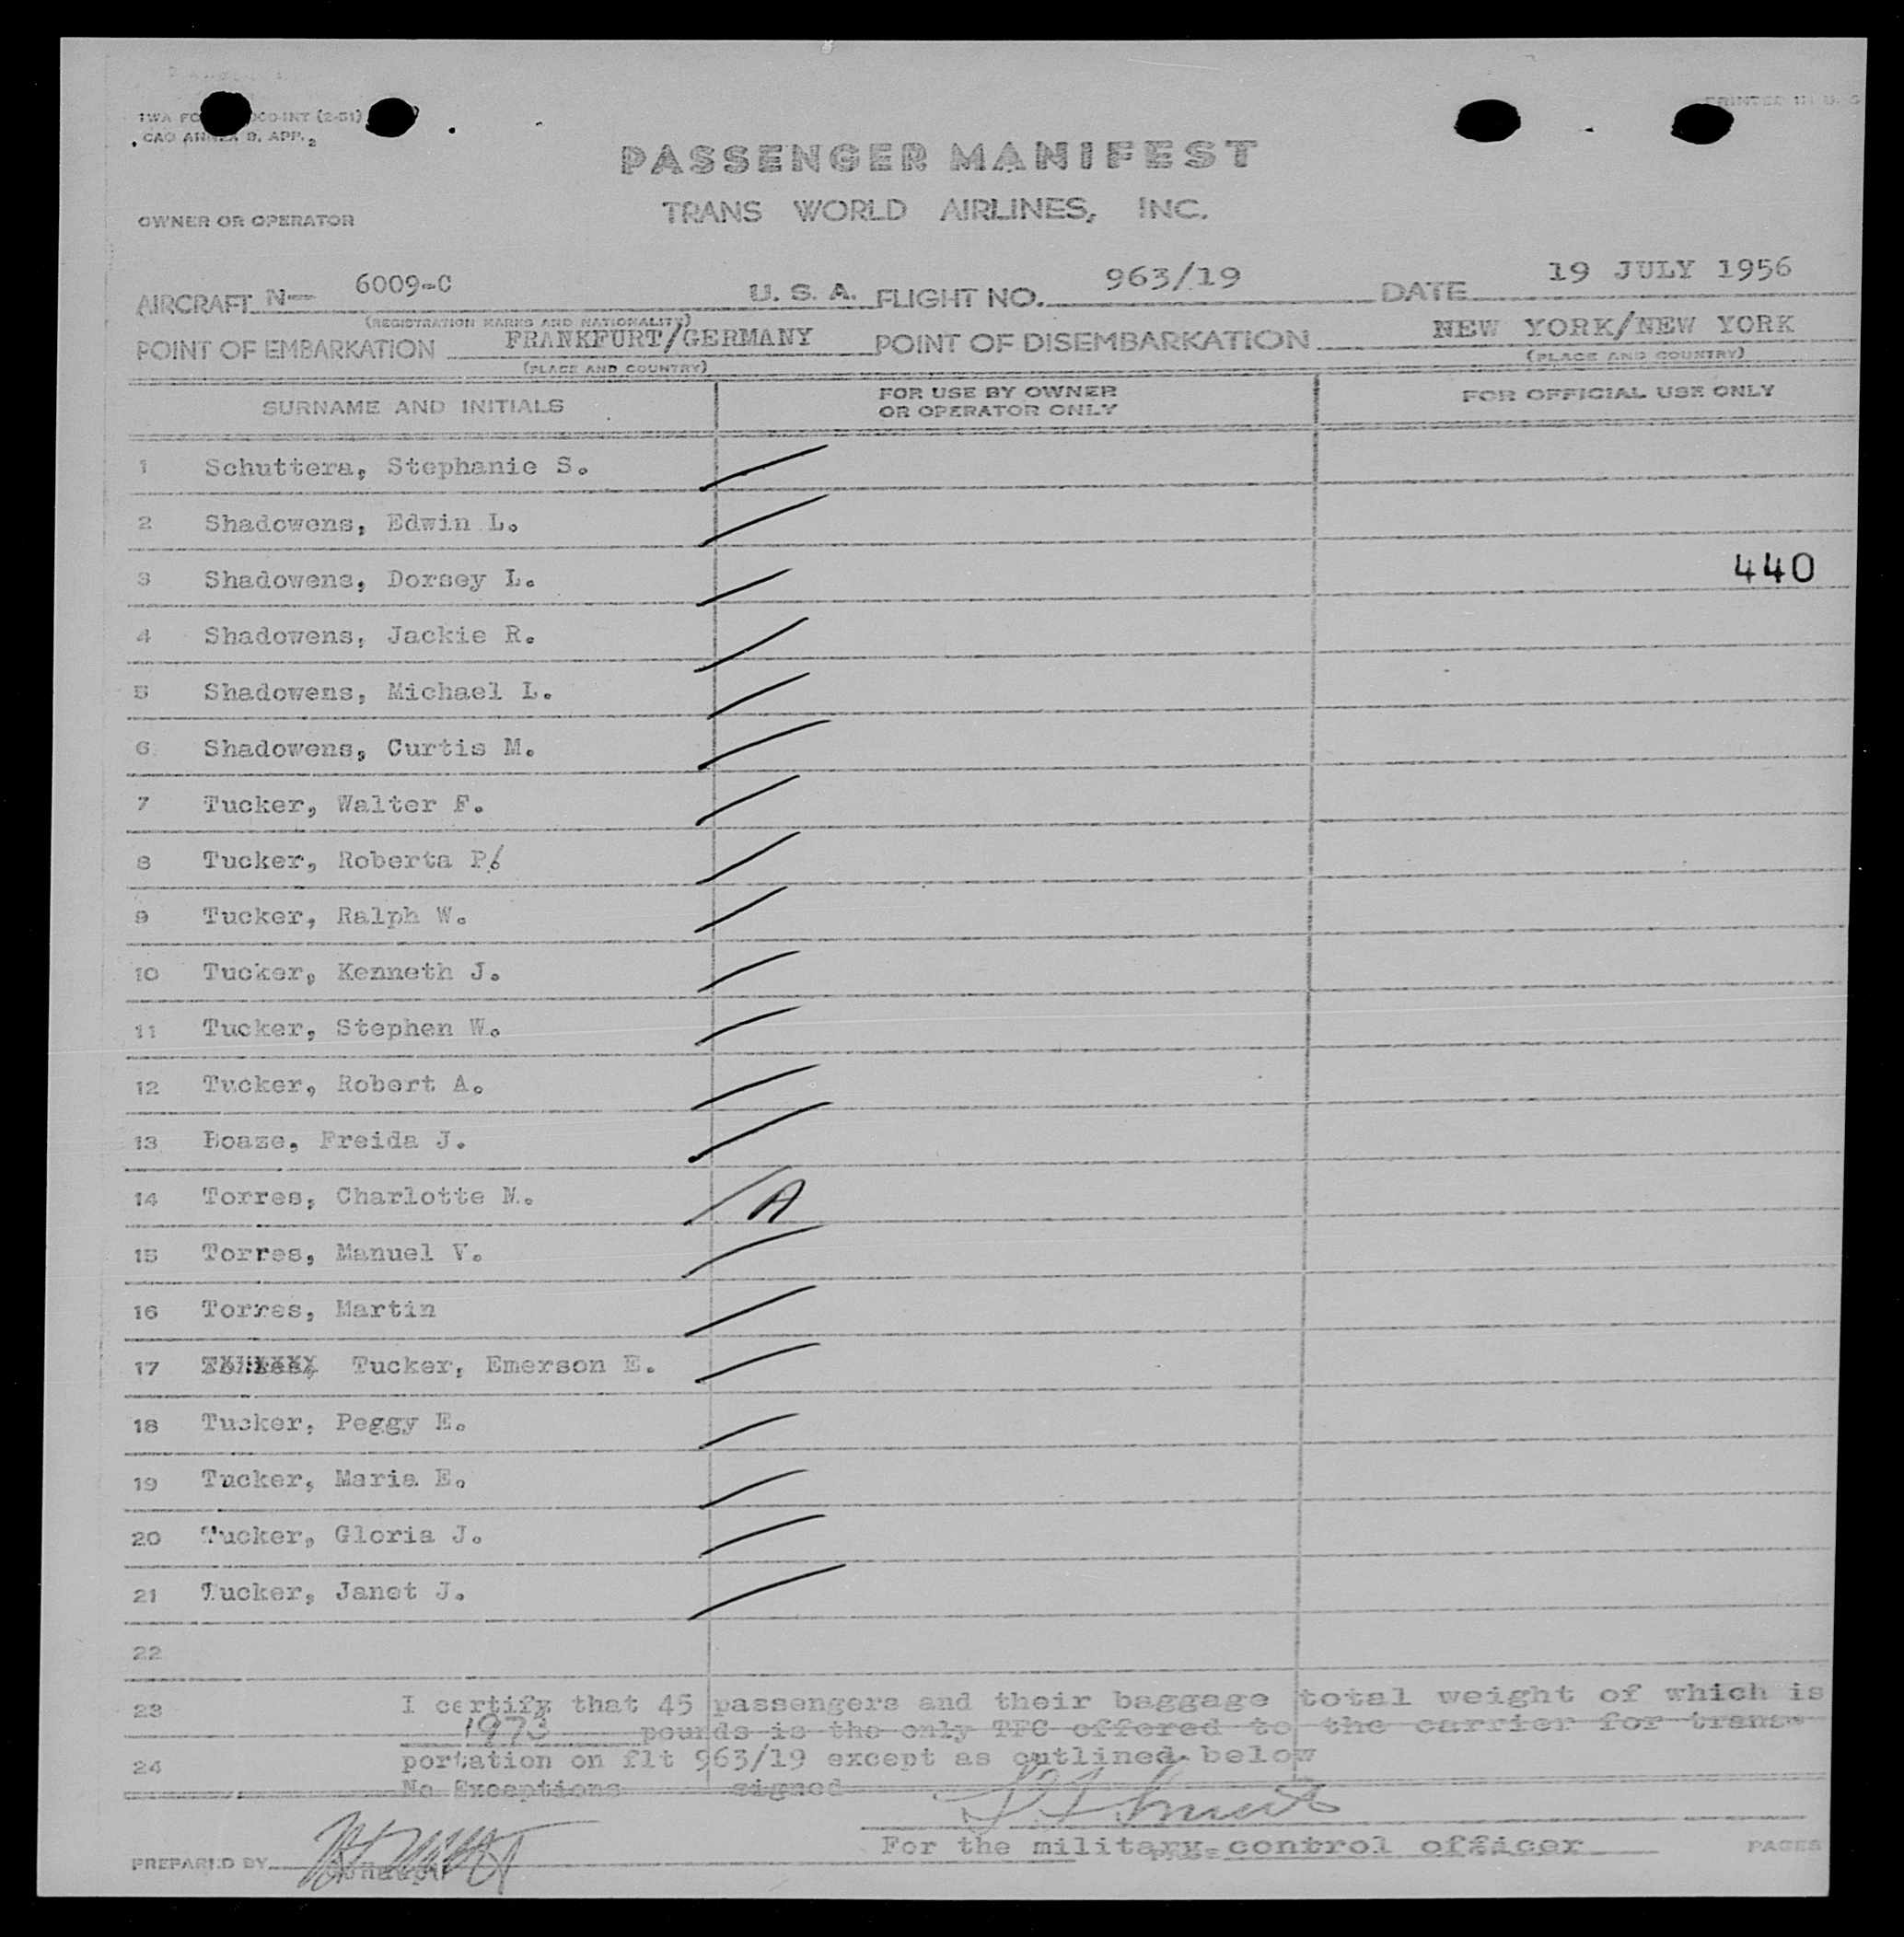 PRINTED IN U. S
TWA FO 000-INT (2-51)
CAO ANNEX 9, APP. 2
PASSENGER MANIFEST
OWNER OR OPERATOR TRANS WORLD AIRLINES, INC.
AIRCRAFT N— 6009-C U. S. A. FLIGHT NO. 963/19 DATE 19 JULY 1956
(REGISTRATION MARKS AND NATIONALITY)
POINT OF EMBARKATION FRANKFURT/GERMANY POINT OF DISEMBARKATION NEW YORK/NEW YORK
(PLACE AND COUNTRY) (PLACE AND COUNTRY)
SURNAME AND INITIALS FOR USE BY OWNER OR OPERATOR ONLY FOR OFFICIAL USE ONLY
1 Schuttera, Stephanie S.
2 Shadowens, Edwin L.
3 Shadowens, Dorsey L. 440
4 Shadowens, Jackie R.
5 Shadowens, Michael L.
6 Shadowens, Curtis M.
7 Tucker, Walter F.
8 Tucker, Roberta P.
9 Tucker, Ralph W.
10 Tucker, Kenneth J.
11 Tucker, Stephen W.
12 Tucker, Robert A.
13 Boaze, Freida J.
14 Torres, Charlotte M. A
15 Torres, Manuel V.
16 Torres, Martin
17 Tucker, Emerson E.
18 Tucker, Peggy E.
19 Tucker, Maria E.
20 Tucker, Gloria J.
21 Tucker, Janet J.
22
23 I certify that 45 passengers and their baggage total weight of which is
1973 pounds is the only TFC offered to the carrier for trans-
24 portation on flt 963/19 except as outlined below
No Exceptions signed
For the military control officer
PREPARED BY PAGES